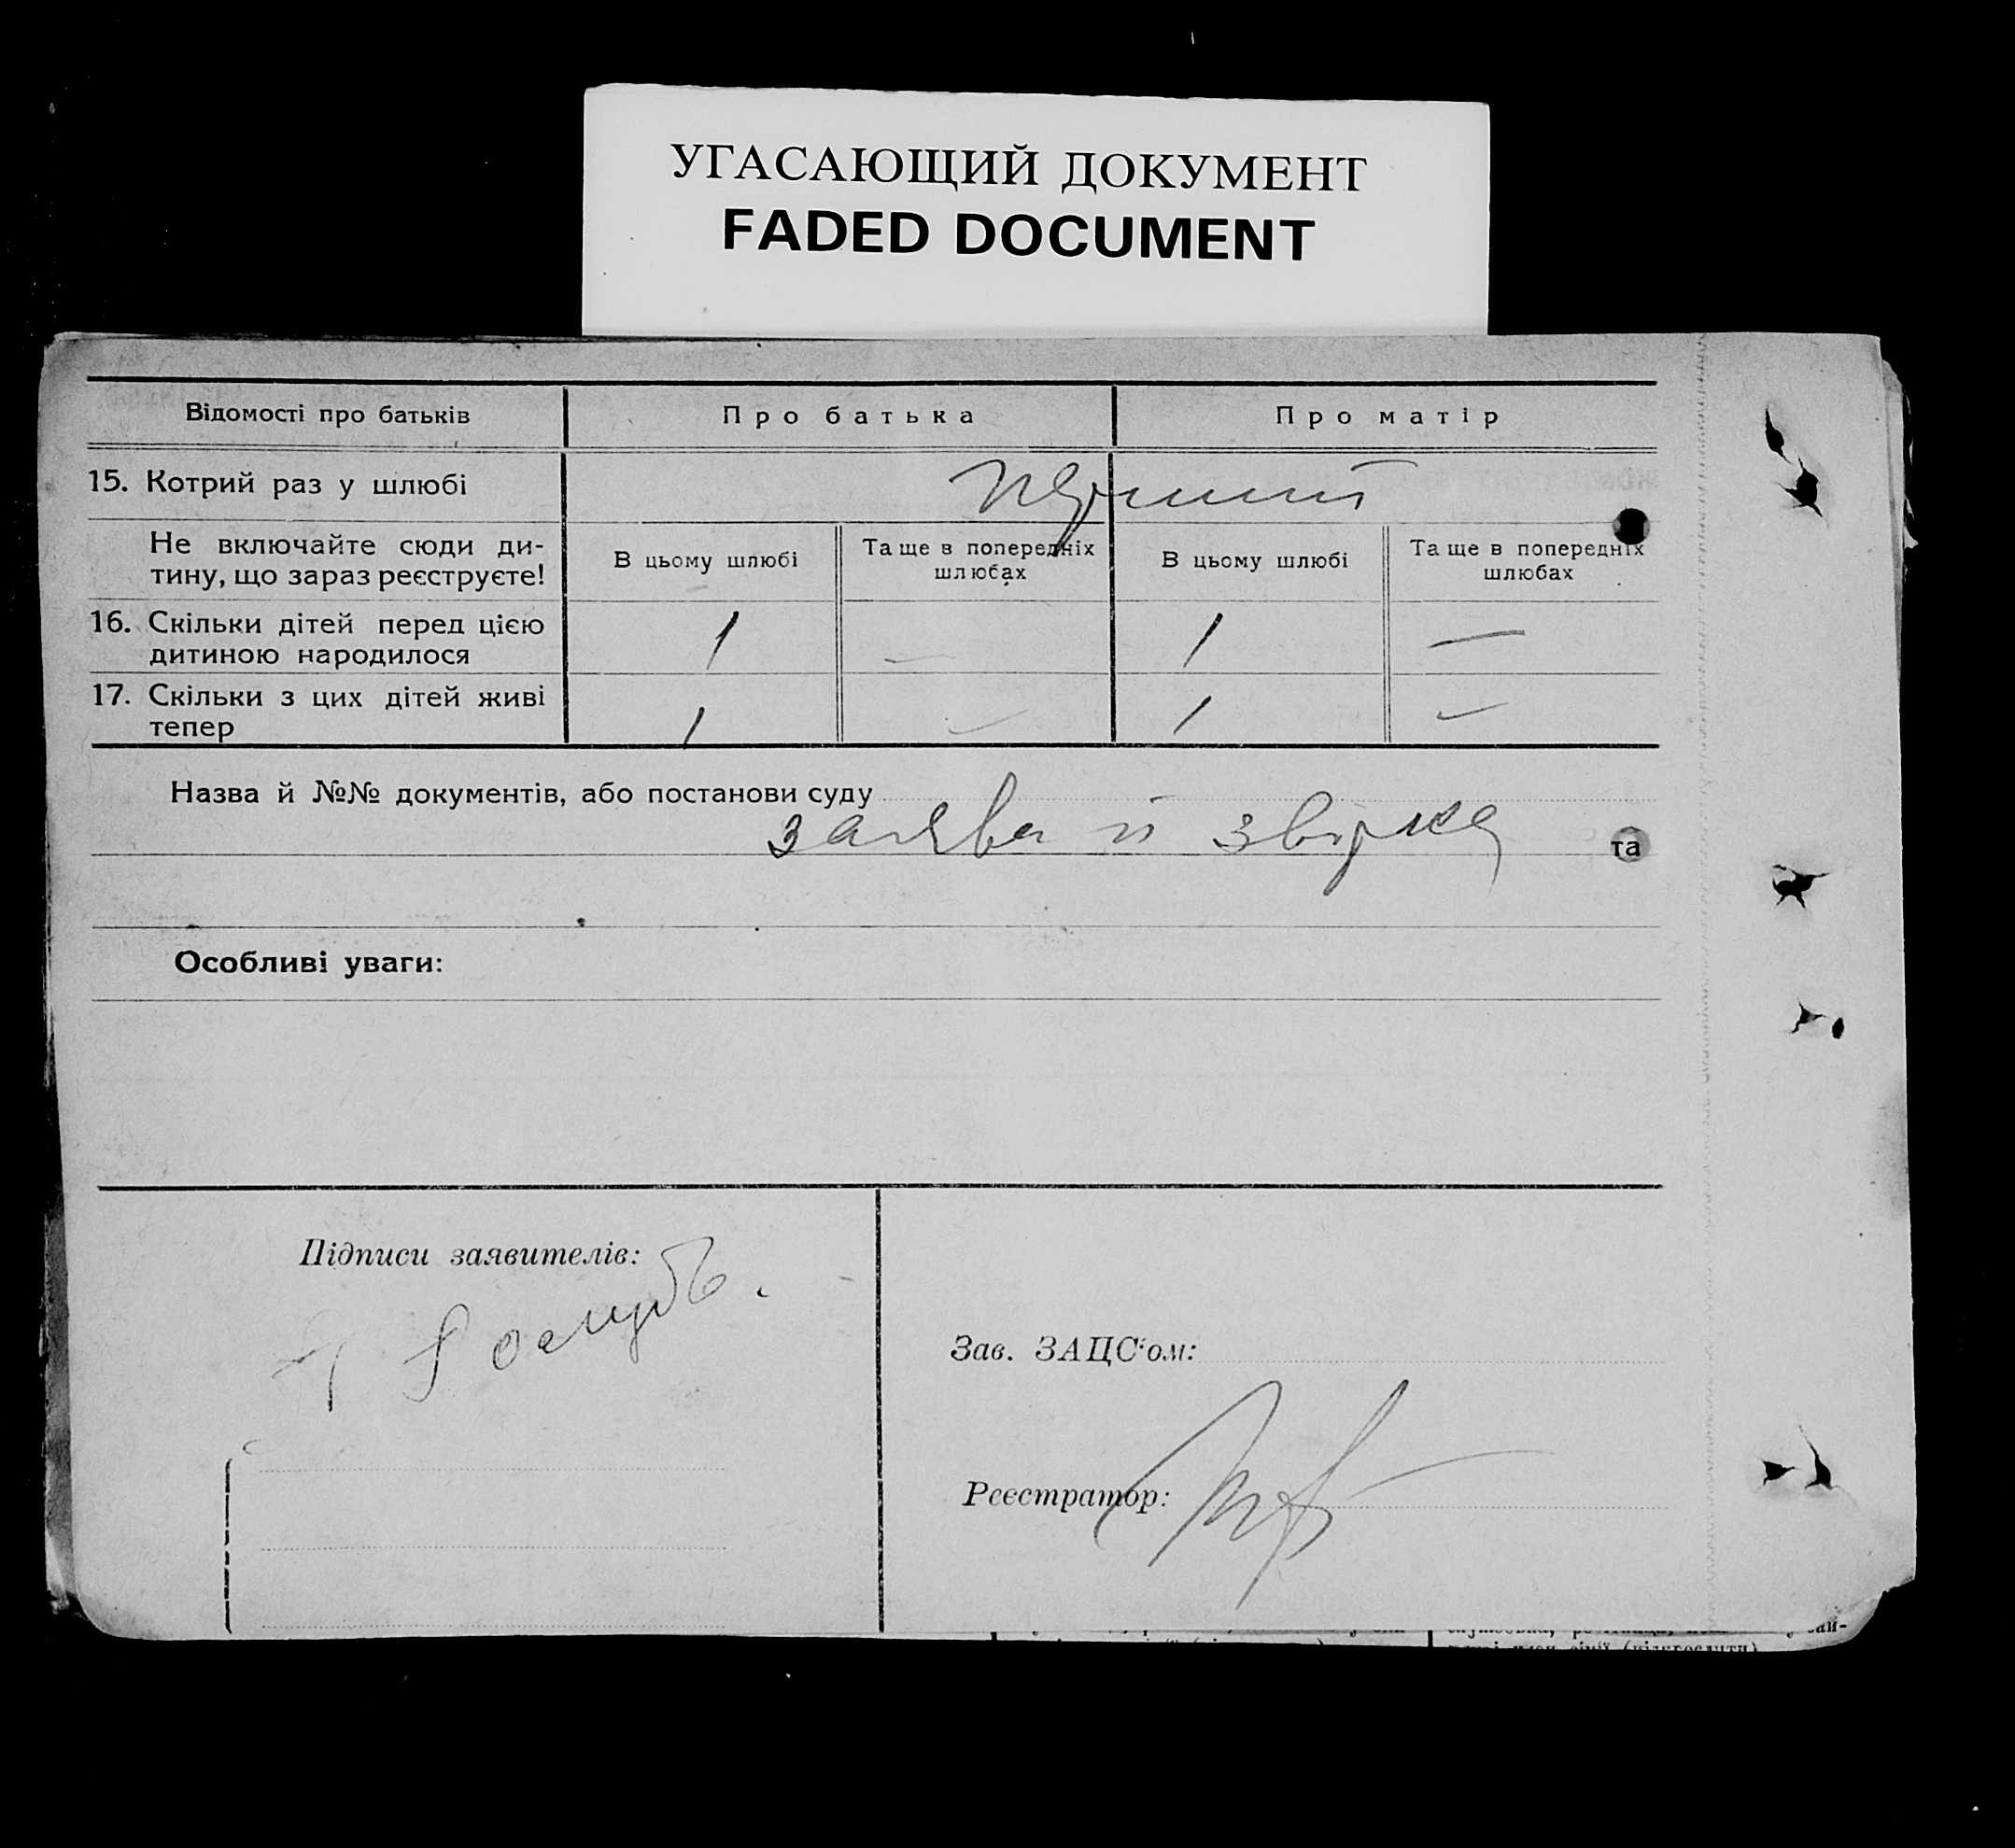 УГАСАЮЩИЙ ДОКУМЕНТ
FADED DOCUMENT
Відомості про батьків
Про батька
Про матір
15. Котрий раз у шлюбі
перший
Не включайте сюди ди-
тину, що зараз реєструєте!
В цьому шлюбі
Та ще в попередніх
шлюбах
В цьому шлюбі
Та ще в попередніх
шлюбах
16. Скільки дітей перед цією
дитиною народилося
1
—
1
—
17. Скільки з цих дітей живі
тепер
1
—
1
—
Назва й №№ документів, або постанови суду
заява й звірка
та
Особливі уваги:
Підписи заявителів:
Зав. ЗАЦС'ом:
Реєстратор: